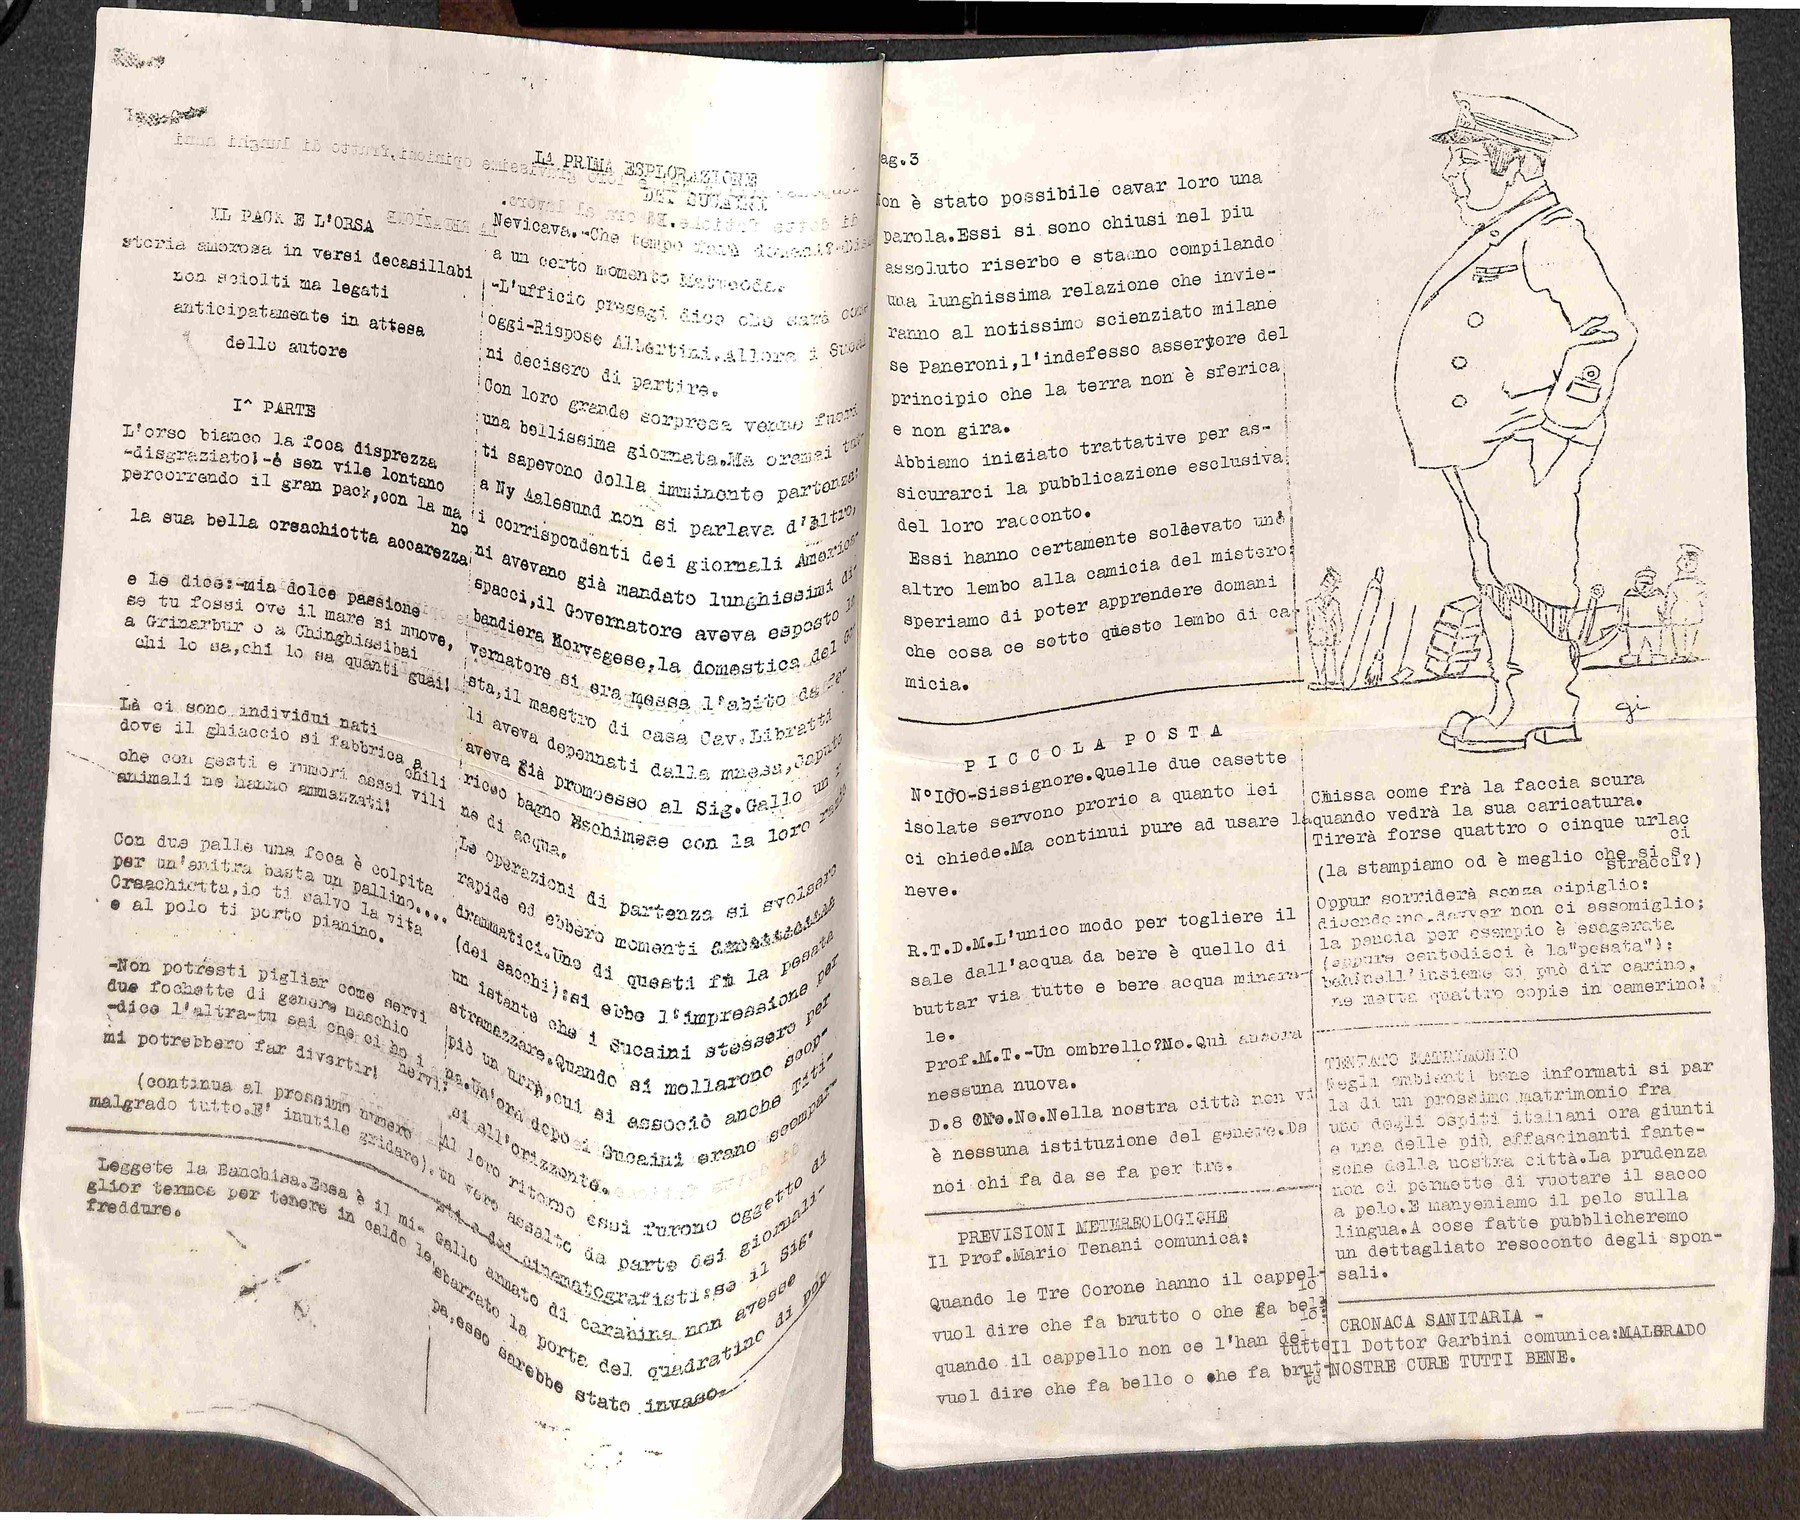 IL PACK E L'ORSA
storia amorosa in versi decasillabi
non sciolti ma legati
anticipatamente in attesa
dello autore
I^ PARTE
L'orso bianco la foca disprezza
-disgraziato!-è sen vile lontano
percorrendo il gran pack,con la ma
no
la sua bella orsachiotta accarezza
e le dice:-mia dolce passione
se tu fossi ove il mare si muove,
a Grinarbur o a Chinghissibai
chi lo sa,chi lo sa quanti guai!
Là ci sono individui nati
dove il ghiaccio si fabbrica a
chili
che con gesti e rumori assai vili
animali ne hanno ammazzati!
Con due palle una foca è colpita
per un'anitra basta un pallino....
Orsachietta,io ti salvo la vita
e al polo ti porto pianino.
-Non potresti pigliar come servi
due fochette di genere maschio
-dice l'altra-tu sai che ci ho i
nervi:
mi potrebbero far divertir!
(continua al prossimo numero
malgrado tutto.E' inutile gridare).
Leggete la Banchisa.Essa è il mi-
glior termos per tenere in caldo le
freddure.
LA PRIMA ESPLORAZIONE
DEI SUCAINI
Nevicava.-Che tempo farà domani?-Disse
a un certo momento Matteoda.
-L'ufficio presagi dice che sarà come
oggi-Rispose Albertini.Allora i Sucai
ni decisero di partire.
Con loro grande sorpresa venne fuori
una bellissima giornata.Ma oramai tut-
ti sapevono della imminente partenza:
a Ny Aalesund non si parlava d'altro,
i corrispondenti dei giornali America-
ni avevano già mandato lunghissimi di-
spacci,il Governatore aveva esposto la
bandiera Norvegese,la domestica del Go-
vernatore si era messa l'abito da fe-
sta,il maestro di casa Cav.Libratti
li aveva depennati dalla mensa,Caputo
aveva già promoesso al Sig.Gallo un
ricco bagno Eschimese con la loro razio
ne di acqua.
Le operazioni di partenza si svolsero
rapide ed ebbero momenti
drammatici.Uno di questi fù la pesata
(dei sacchi):si ebbe l'impressione per
un istante che i Sucaini stessero per
stramazzare.Quando si mollarono scop-
piò un urrà,cui si associò anche Titi-
na.Un'ora dopo i Sucaini erano scompar-
si all'orizzonte.
Al loro ritorno essi furono oggetto di
un vero assalto da parte dei giornali-
sti e dei cinematografisti:se il Sig.
Gallo armato di carabina non avesse
sbarrato la porta del quadratino di pop
pa,esso sarebbe stato invaso.
ag.3
on è stato possibile cavar loro una
parola.Essi si sono chiusi nel piu
assoluto riserbo e stanno compilando
una lunghissima relazione che invie-
ranno al notissimo scienziato milane
se Paneroni,l'indefesso assertore del
principio che la terra non è sferica
e non gira.
Abbiamo iniziato trattative per as-
sicurarci la pubblicazione esclusiva
del loro racconto.
Essi hanno certamente sollevato un
altro lembo alla camicia del mistero:
speriamo di poter apprendere domani
che cosa ce sotto questo lembo di ca-
micia.
gi
PICCOLA POSTA
N°100-Sissignore.Quelle due casette
isolate servono prorio a quanto lei
ci chiede.Ma continui pure ad usare la
neve.
R.T.D.M.L'unico modo per togliere il
sale dall'acqua da bere è quello di
buttar via tutto e bere acqua minera-
le.
Prof.M.T.-Un ombrello?No.Quì ancora
nessuna nuova.
D.8 One.No.Nella nostra città non vi
è nessuna istituzione del genere.Da
noi chi fa da se fa per tre.
PREVISIONI METEREOLOGICHE
Il Prof.Mario Tenani comunica:
Quando le Tre Corone hanno il cappel-
lo
vuol dire che fa brutto o che fa bel-
lo:
quando il cappello non ce l'han del
tutto
vuol dire che fa bello o che fa brut-
to
Chissa come frà la faccia scura
quando vedrà la sua caricatura.
Tirerà forse quattro o cinque urlac
ci
(la stampiamo od è meglio che si s
stracci?)
Oppur sorriderà senza cipiglio:
dicendo:no,davver non ci assomiglio;
la pancia per esempio è esagerata
(eppure centodieci è la"pesata"):
beh!nell'insieme si può dir carino,
ne metta quattro copie in camerino!
TENTATO MATRIMONIO
Negli ambienti bene informati si par
la di un prossimo matrimonio fra
uno degli ospiti italiani ora giunti
e una delle più affascinanti fante-
sche della nostra città.La prudenza
non ci permette di vuotare il sacco
a pelo.E manyeniamo il pelo sulla
lingua.A cose fatte pubblicheremo
un dettagliato resoconto degli spon-
sali.
CRONACA SANITARIA -
Il Dottor Garbini comunica:MALGRADO
NOSTRE CURE TUTTI BENE.